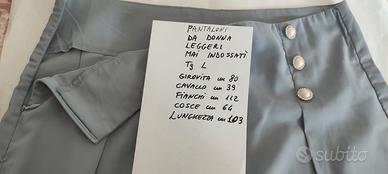 PANTALONI
DA DONNA
LEGGERI
MAI INDOSSATI
Tg L
GIROVITA cm 80
CAVALLO cm 39
FIANCHI cm 112
COSCE cm 64
LUNGHEZZA cm 103
subito